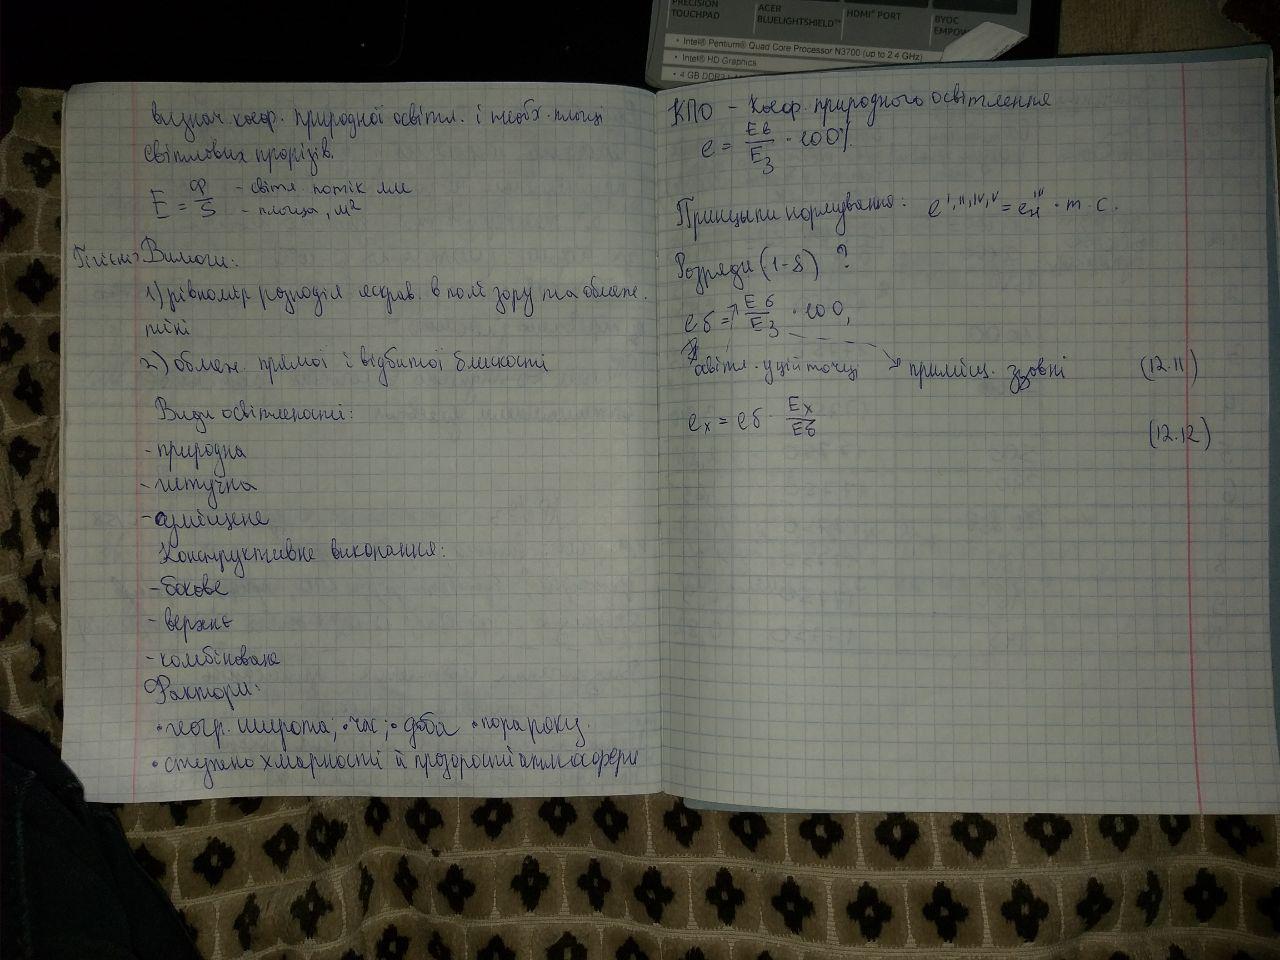 PRECISION
TOUCHPAD
ACER
BLUELIGHTSHIELD™
HDMI® PORT
BYOC
EMPOW
• Intel® Pentium® Quad Core Processor N3700 (up to 2.4 GHz)
• Intel® HD Graphics
• 4 GB DDR3
визнач. коеф. природної освітл. і необх. площі
світлових прорізів.
E = Ф/S - світл. потік лм
- площа, м²
Вимоги:
1) рівномір розподіл яскрав. в полі зору та обмеж.
тіні
2) обмеж. прямої і відбитої блискості
Види освітленості:
- природна
- штучна
- суміщене
Конструктивне виконання:
- бокове
- верхнє
- комбіноване
Фактори:
• геогр. широта; • час; • доба • пора року.
• ступено хмарності й прозорості атмосфери
КПО - коеф. природного освітлення
e = Eв/Eз · 100%.
Принципи нормування: e I, II, IV, V = eн III · m · c.
Розряди (1-8) ?
eб = Eб/Eз · 100,
освітл. у цій точці приміщ. ззовні (12.11)
eх = eб · Eх/Eб (12.12)